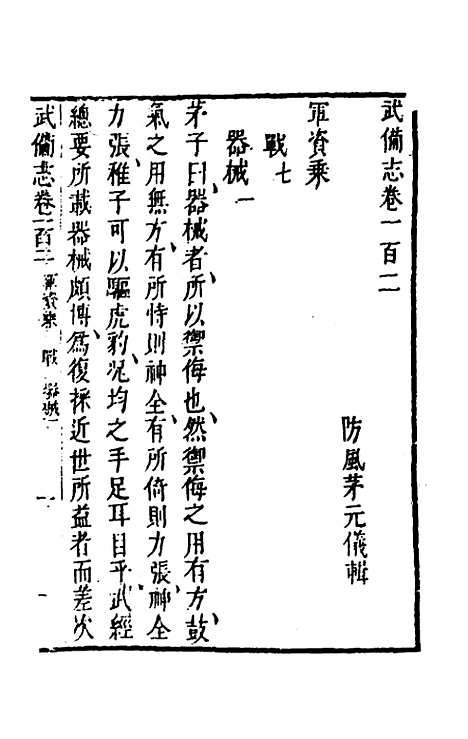 武備志卷一百二
防風茅元儀輯
軍資乘
戰七
器械一
茅子曰、器械者、所以禦侮也、然禦侮之用有方、鼓
氣之用無方、有所恃則神全、有所倚則力張、神全
力張、稚子可以驅虎豹、况均之手足耳目乎、武經
總要所載器械頗博、爲復採近世所益者而差次
武備志卷一百二 軍資乘 戰 器械一 一